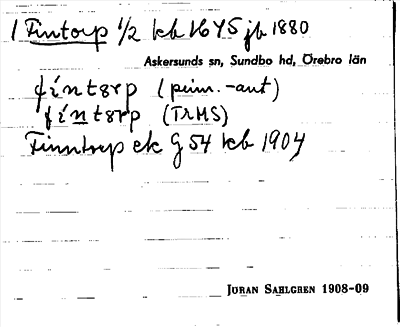 1 Fintorp 1/2 kb 1645 jb 1880
Askersunds sn, Sundbo hd, Örebro län
fíntɘrp (prim.-ant)
fíntɘrp (TRHS)
Finntorp ek G 54 kb 1904
JÖRAN SAHLGREN 1908-09